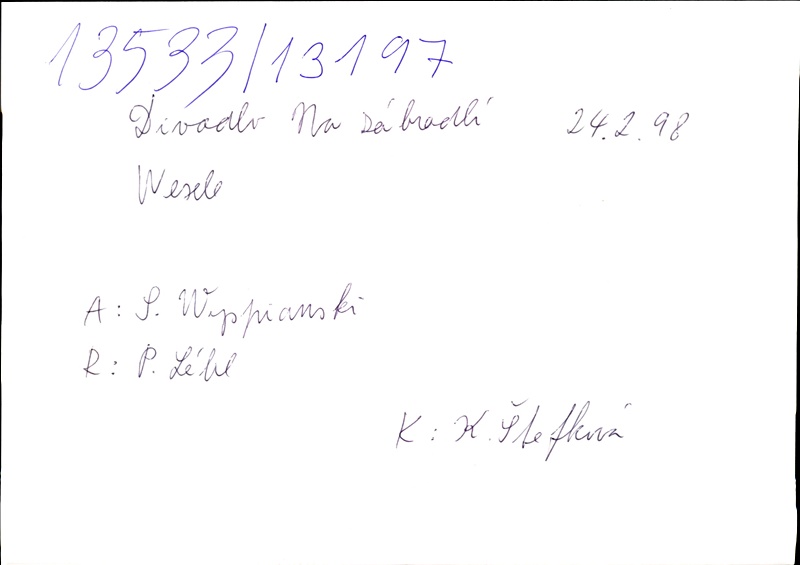 13533/13197
Divadlo Na zábradlí 24.2.98
Wesele
A: S. Wyspianski
R: P. Lébl
K: K. Štefková